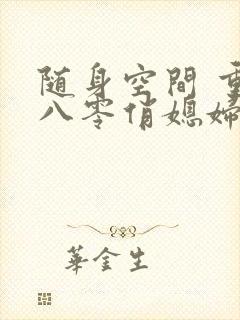 随身空間
八零俏媳婦
華金生